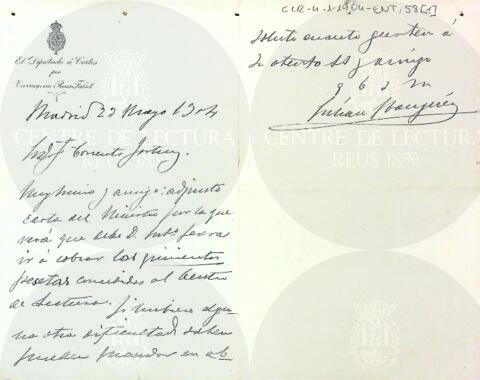 El Diputado á Cortes
por
Tarragona-Reus-Falset
Madrid 23 Mayo 1904
Muy mio y amigo: adjunto
carta del Ministro por la que
verá que debe D.
ir á cobrar las quinientas
pesetas concedidas al Centro
de Lectura. Si hubiera algu-
na otra dificultad saben
pueden mandar en ab-
CLR-4-1-1904-ENT; 58[1]
soluto cuanto gusten á
su atento SS y amigo
q b s m
Julián
CENTRE DE LECTURA
REUS 1859
CENTRE DE LECTURA
REUS 1859